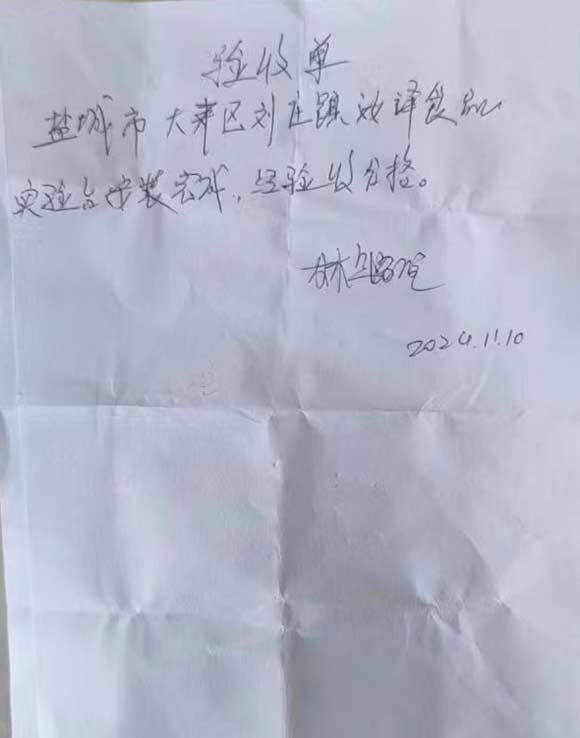 验收单
盐城市大丰区刘庄镇 食品
实验台安装完成,经验收合格。
林
2024.11.10